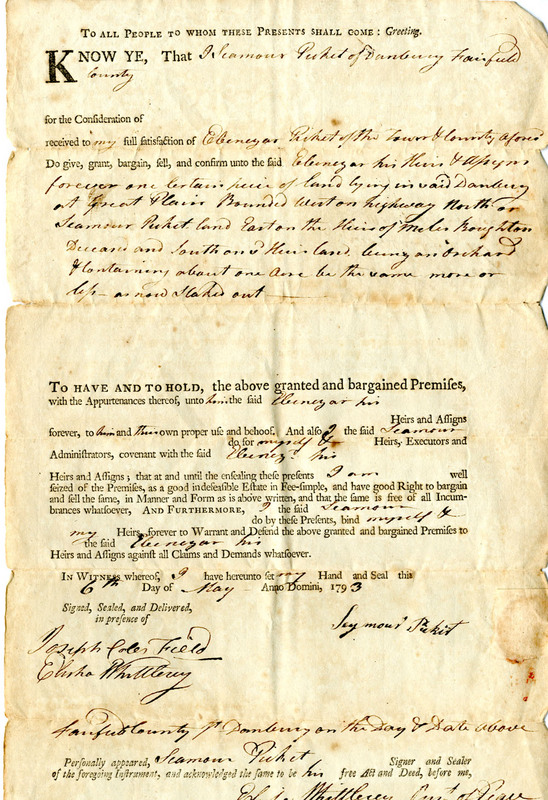 TO ALL PEOPLE TO WHOM THESE PRESENTS SHALL COME: Greeting.
KNOW YE, That I Seamour Picket of Danbury Fairfield
County
for the Consideration of
received to my full satisfaction of Ebenezar Picket of the Town & County afores
Do give, grant, bargain, sell, and confirm unto the said Ebenezar his Heirs & Assigns
forever one Certain piece of land lying in said Danbury
at Great Plain Bounded West on highway North on
Seamour Picket land East on the Heirs of Miles Boughton
Deceas and South on Heirs land, being an Orchard
& Containing about one Acre be the same more or
less - as now Staked out
TO HAVE AND TO HOLD, the above granted and bargained Premises,
with the Appurtenances thereof, unto him the said Ebenezar his
Heirs and Assigns
forever, to him and their own proper use and behoof. And also I the said Seamour
do for myself & Heirs, Executors and
Administrators, covenant with the said Ebenezr his
Heirs and Assigns; that at and until the ensealing these presents I am well
seized of the Premises, as a good indefeasible Estate in Fee-simple, and have good Right to bargain
and sell the same, in Manner and Form as is above written, and that the same is free of all Incum-
brances whatsoever, AND FURTHERMORE, I the said Seamour
do by these Presents, bind myself &
my Heirs, forever to Warrant and Defend the above granted and bargained Premises to
the said Ebenezar his
Heirs and Assigns against all Claims and Demands whatsoever.
IN WITNESS whereof, I have hereunto set my Hand and Seal this
6th Day of May Anno Domini, 1793
Signed, Sealed, and Delivered,
in presence of
Seymour Picket
Joseph Field
Elisha Whittlesey
Fairfield County Danbury on the Day & Date above
Personally appeared, Seamour Picket Signer and Sealer
of the foregoing Instrument, and acknowledged the same to be his free Act and Deed, before me,
Whittlesey Just of Peace